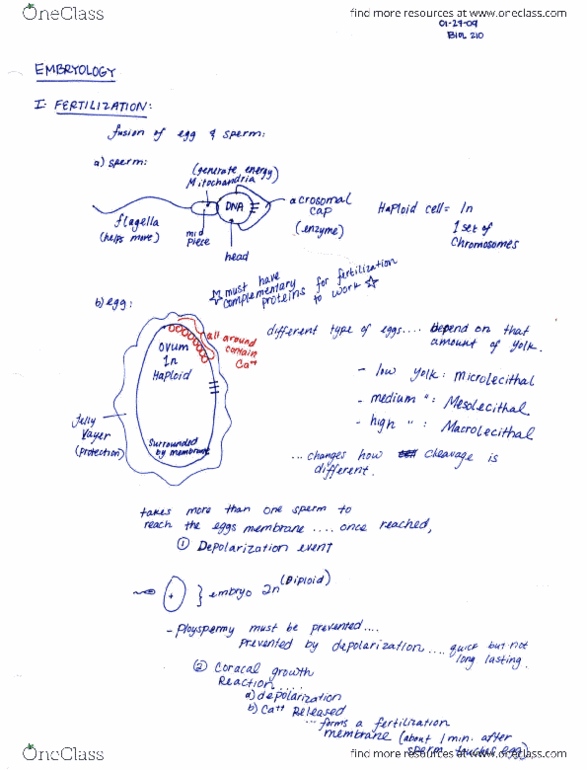 OneClass
find more resources at www.oneclass.com
01-29-09
BIOL 210
EMBRYOLOGY
I. FERTILIZATION:
fusion of egg & sperm:
a) sperm:
(generate energy)
Mitochondria
DNA
acrosomal
cap
(enzyme)
Haploid cell = 1n
1 set of
Chromosomes
flagella
(helps move)
mid
piece
head
☆ must have
complementary
proteins for fertilization
to work ☆
b) egg:
all around
contain
Ca++
ovum
1n
Haploid
Jelly
Layer
(protection)
Surrounded
by membrane
different type of eggs.... depend on that
amount of yolk.
- low yolk: Microlecithal
- medium ": Mesolecithal
- high ": Macrolecithal
...changes how cleavage is
different.
takes more than one sperm to
reach the eggs membrane .... once reached,
① Depolarization event
} embryo 2n (Diploid)
- Ployspermy must be prevented....
prevented by depolarization .... quick but not
long lasting.
② Coracal growth
Reaction.....
a) depolarization
b) Ca++ Released
...forms a fertilization
membrane (about 1 min. after
sperm touches egg)
OneClass
find more resources at www.oneclass.com